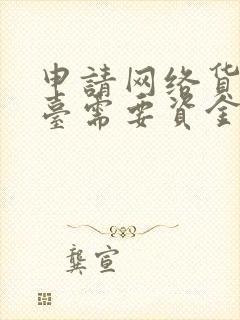 申請网络货
臺需要资金
龔宣